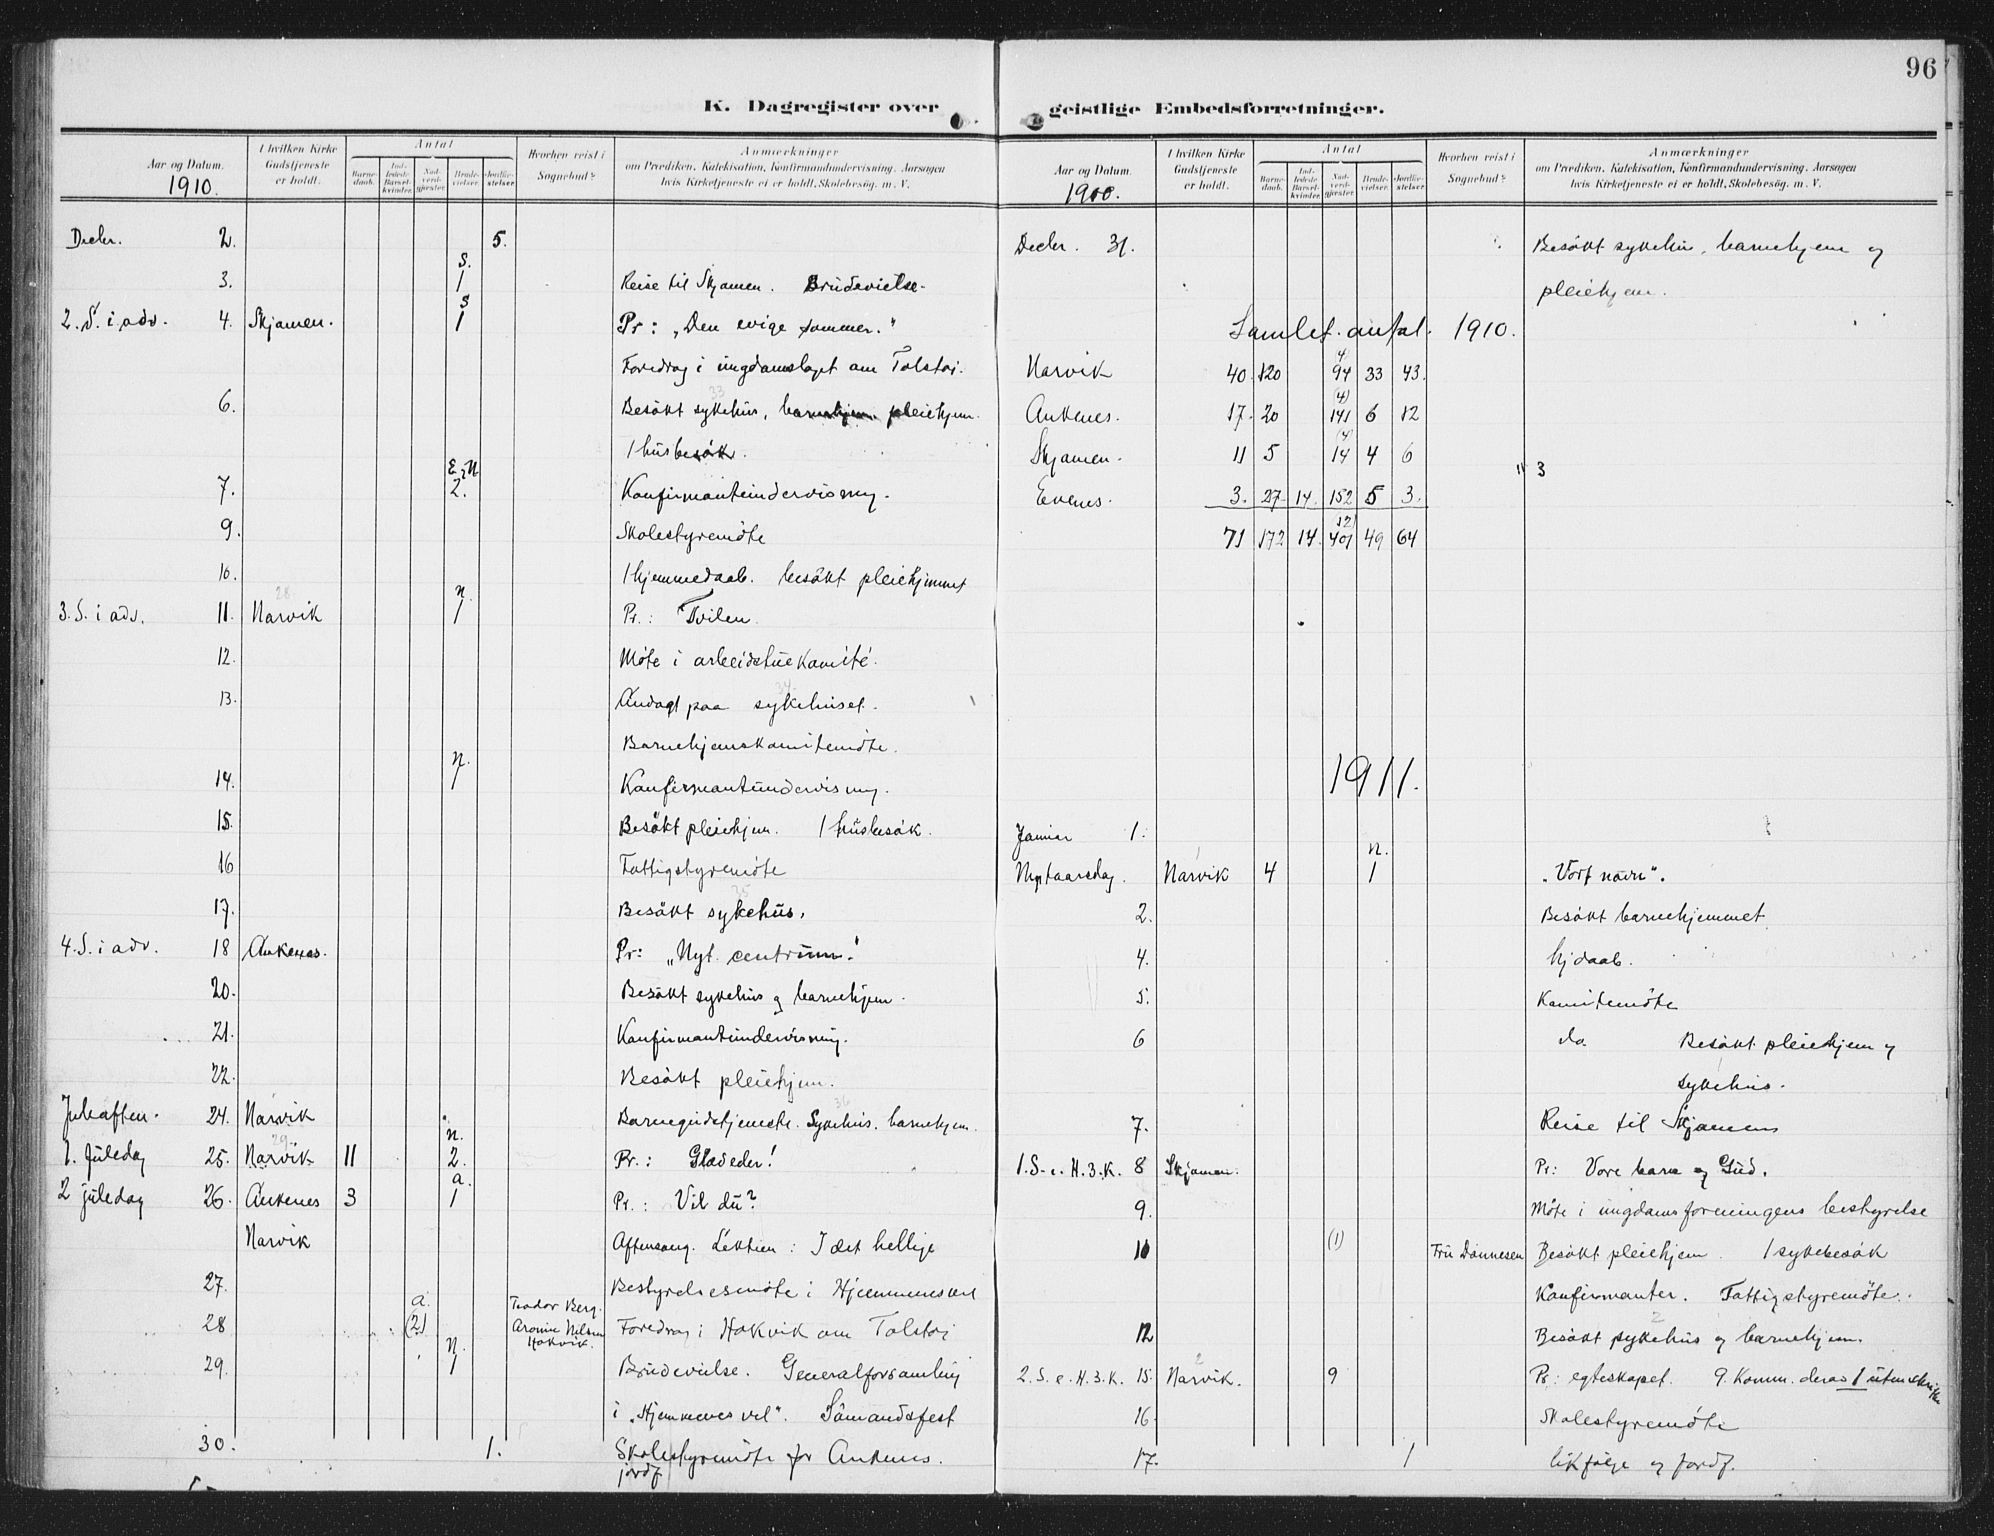 96
K. Dagregister over geistlige Embedsforretninger.
Aar og Datum. 1910.
I hvilken Kirke Gudstjeneste er holdt.
Antal
Barnedaab.
Indledede Barselkvinder.
Nadverdgjester.
Brudevielser.
Jordfæstelser.
Hvorhen reist i Sognebud?
Anmærkninger
om Prædiken, Katekisation, Konfirmandundervisning. Aarsagen
hvis Kirketjeneste ei er holdt. Skolebesøg. m. V.
Decbr. 2. 5.
3. S. 1 Reise til Skjomen. Brudevielse.
2. S. i adv. 4. Skjomen. S 1 Pr: „Den evige sommer."
Foredrag i ungdomslaget om Tolstoi.
33
6. Besökt sykehus, barnehjem. pleiehjem.
1 husbesök.
7. E. N 2. Konfirmantundervisning.
9. Skolestyremöte
10. 1 hjemmedaab. besökt pleiehjemmet
28
3. S. i adv. 11. Narvik n. 1 Pr.: Tvilen.
12. Möte i arbeidstuekomité.
34
13. Andagt paa sykehuset.
Barnehjemskomitemöte.
14. N. 1 Konfirmantundervisning.
15. Besökt pleiehjem. 1 husbesök.
16 Fattigstyremöte
35
17. Besökt sykehus.
4. S. i adv. 18 Ankenes. Pr: „Nyt centrum."
20. Besökt sykehus og barnehjem.
21. Konfirmantundervisning.
22. Besökt pleiehjem.
36
Juleaften. 24. Narvik Barnegudstjeneste. Sykehus. barnehjem.
29
1. Juledag 25. Narvik 11 n. 2. Pr.: Glæd eder!
2 juledag 26. Ankenes 3 a. 1 Pr.: Vil du?
Narvik Aftensang. Lektien: I det hellige
27. Bestyrelsesmöte i Hjemmenes vel
28 a. (2) Teodor Berg. Aronne Nilsen Hakvik. Foredrag i Hakvik om Tolstoi
29. N. 1 Brudevielse. Generalforsamling
i „Hjemmenes vel". Sömandsfest
30. 1. Skolestyremöte for Ankenes.
jordf
Aar og Datum. 1910.
I hvilken Kirke Gudstjeneste er holdt.
Antal
Barnedaab.
Indledede Barselkvinder.
Nadverdgjester.
Brudevielser.
Jordfæstelser.
Hvorhen reist i Sognebud?
Anmærkninger
om Prædiken, Katekisation, Konfirmandundervisning. Aarsagen
hvis Kirketjeneste ei er holdt, Skolebesøg. m. V.
Decbr. 31. Besökt sykehus, barnehjem og
pleiehjem.
Samlet antal. 1910.
Narvik 40. 120 (4) 94 33 43.
Ankenes. 17. 20 (4) 141 6 12
Skjomen. 11 5 (4) 14 4 6
" 3
Evenes. 3. 27 14. 152 5 3.
71 172 14. (12) 401 49 64
1911.
Januar 1.
Nytaarsdag. Narvik 4 n. 1 „Vort navn".
2. Besökt barnehjemmet.
4. hjdaab.
5. Komitemöte
6 do. Besökt pleiehjem og
sykehus.
7. Reise til Skjomen
1. S. e. H. 3. K. 8 Skjomen. Pr: Vore barn og Gud.
9. Möte i ungdomsforeningens bestyrelse
10 (1) Fru Dönnesen Besökt pleiehjem. 1 sykebesök
Konfirmanter. Fattigstyremöte.
2
12 Besökt sykehus og barnehjem.
2
2. S. e. H. 3. K. 15. Narvik. 9 Pr: egteskapet. 9. Komm. deraf 1
16. Skolestyremöte
17. 1 likfölge og Jordf.